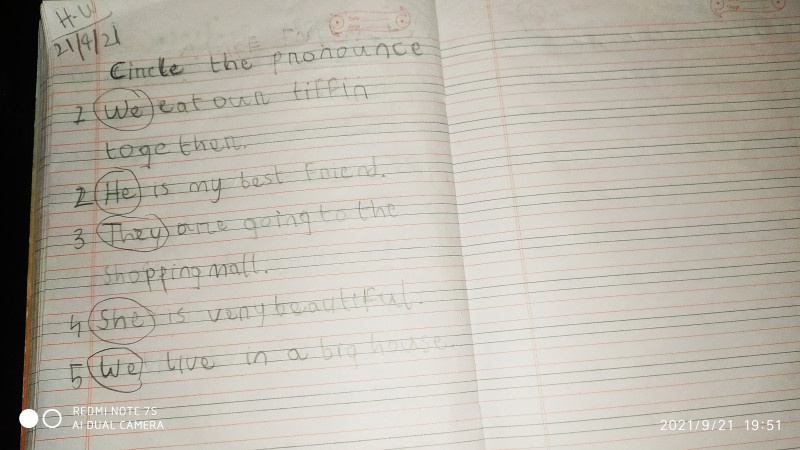 H.W
21/4/21
Circle the pronounce
1 We eat our tiffin
together.
2 He is my best friend.
3 They are going to the
shopping mall.
4 She is very beautiful.
5 We live in a big house.
REDMI NOTE 7S
AI DUAL CAMERA
2021/9/21 19:51